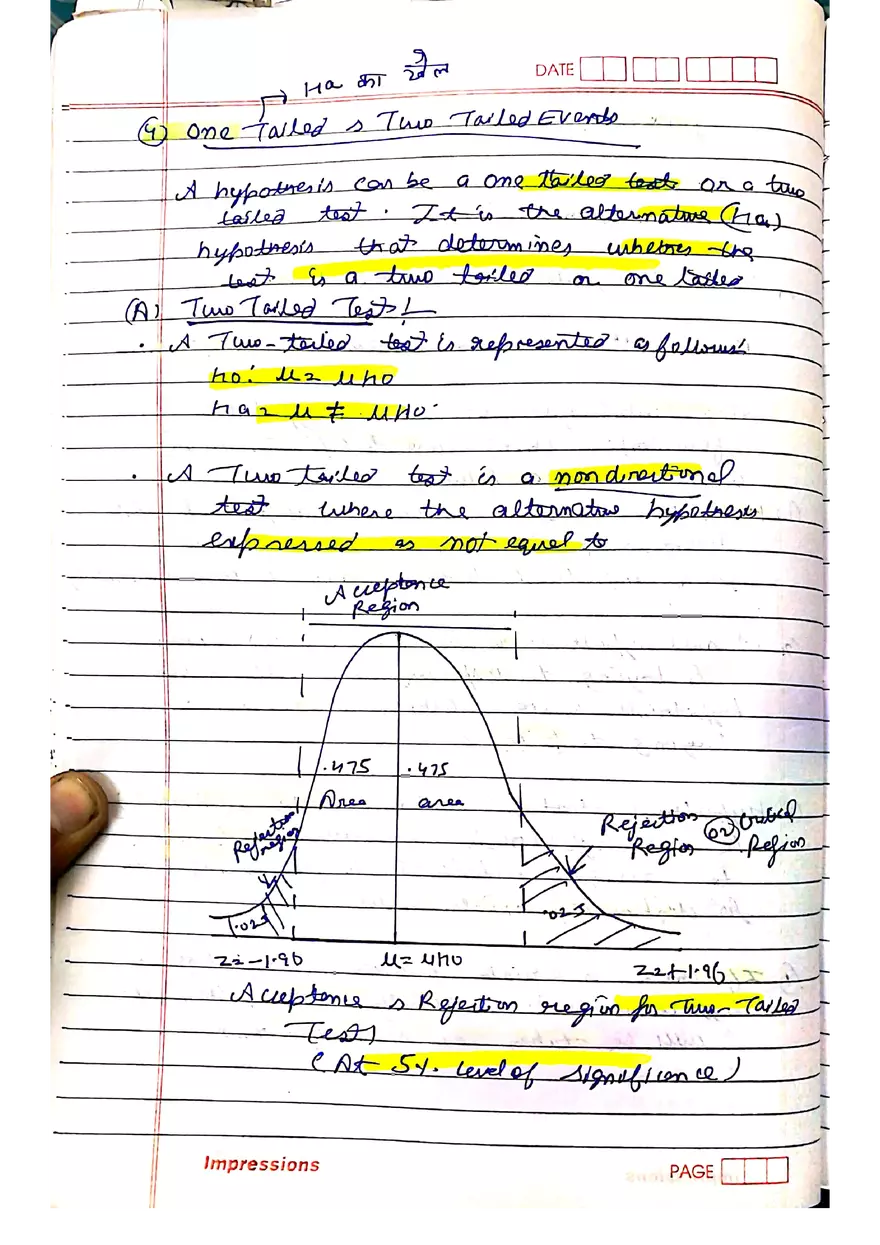 Ha का खेल
DATE
(4) One Tailed & Two Tailed Events
A hypothesis can be a one tailed test or a two
tailed test. It is the alternative (Ha)
hypothesis that determines whether the
test is a two tailed or one tailed
(A) Two Tailed Test :-
· A Two-tailed test is represented as follows:
H0: μ = μH0
Ha = μ ≠ μH0.
· A Two tailed test is a nondirectional
test where the alternative hypothesis
expressed as not equal to
Acceptance
Region
.475 .475
Area area
Rejection
region
Rejection
Region
or
Critical
Region
.025 .025
Z=-1.96 μ=μH0 Z=+1.96
Acceptance & Rejection region for Two-Tailed
Test
(At 5%. level of significance)
Impressions
PAGE